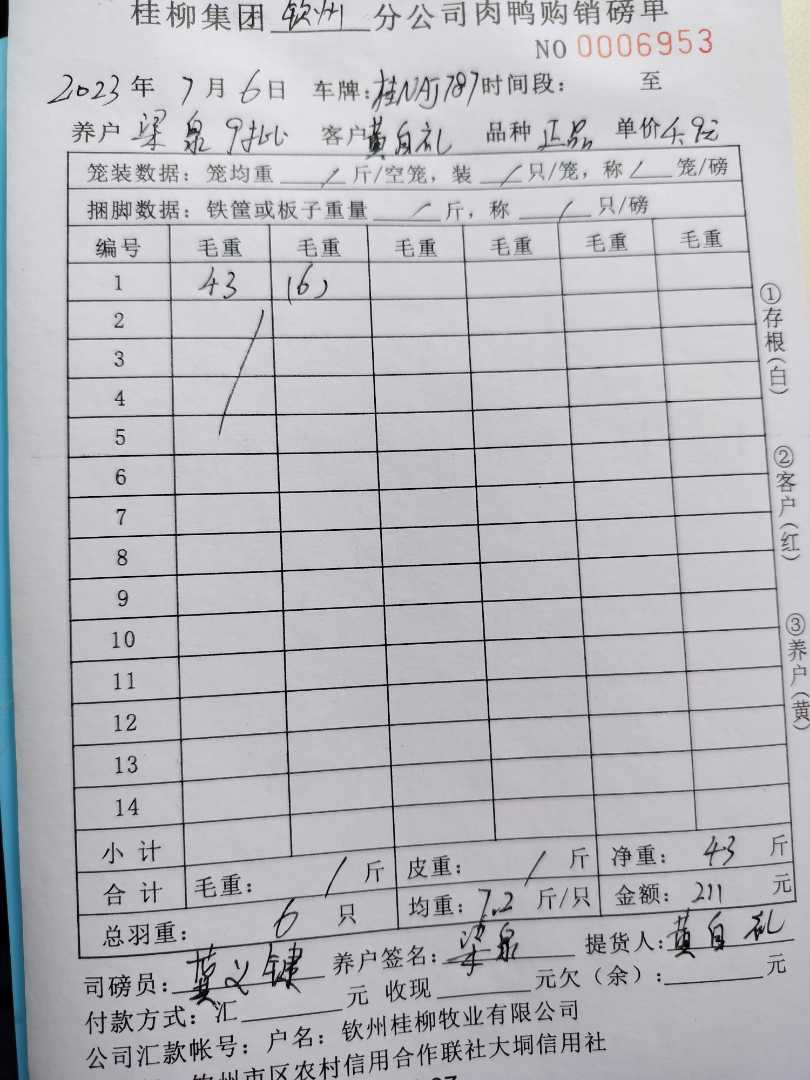 桂柳集团 钦州 分公司肉鸭购销磅单
NO 0006953
2023年 7月6日 车牌:桂NAJ787 时间段: 至
养户 梁泉 9批 客户 黄自礼 品种 正品 单价4.9元
笼装数据: 笼均重 / 斤/空笼, 装 / 只/笼, 称 / 笼/磅
捆脚数据: 铁筐或板子重量 / 斤, 称 / 只/磅
编号 毛重 毛重 毛重 毛重 毛重 毛重
1 43 (6)
2
3
4
5
6
7
8
9
10
11
12
13
14
小计
合计 毛重: / 斤 皮重: / 斤 净重: 43 斤
总羽重: 6 只 均重: 7.2 斤/只 金额: 211 元
司磅员: 黄义键 养户签名: 梁泉 提货人: 黄自礼
付款方式: 汇 元 收现 元欠(余): 元
公司汇款帐号: 户名: 钦州桂柳牧业有限公司
钦州市区农村信用合作联社大垌信用社
①存根(白)
②客户(红)
③养户(黄)